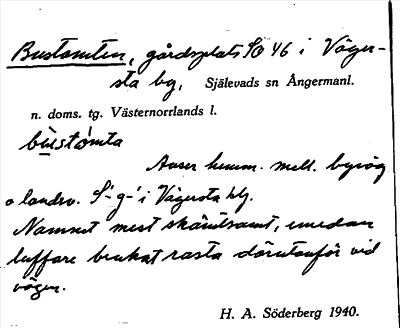 Bustomten, gårdsplats SO 46 i Väger-
sta by, Själevads sn Ångermanl.
n. doms. tg. Västernorrlands l.
bústómta
Avser hemm. mell. byväg
o landsv. S-g- i Vägersta by.
Namnet mest skämtsamt, emedan
luffare brukat rasta därutanför vid
vägen.
H. A. Söderberg 1940.